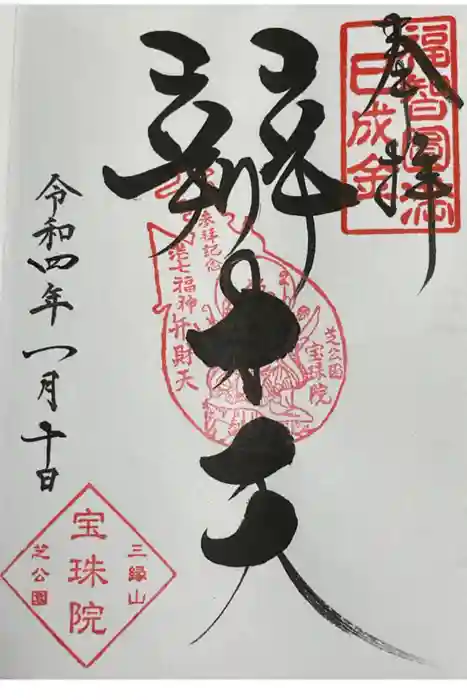 奉拝
福智圓満
巳成金
辯才天
参拝記念
港七福神弁財天
芝公園
宝珠院
令和四年一月十日
三縁山
宝珠院
芝公園